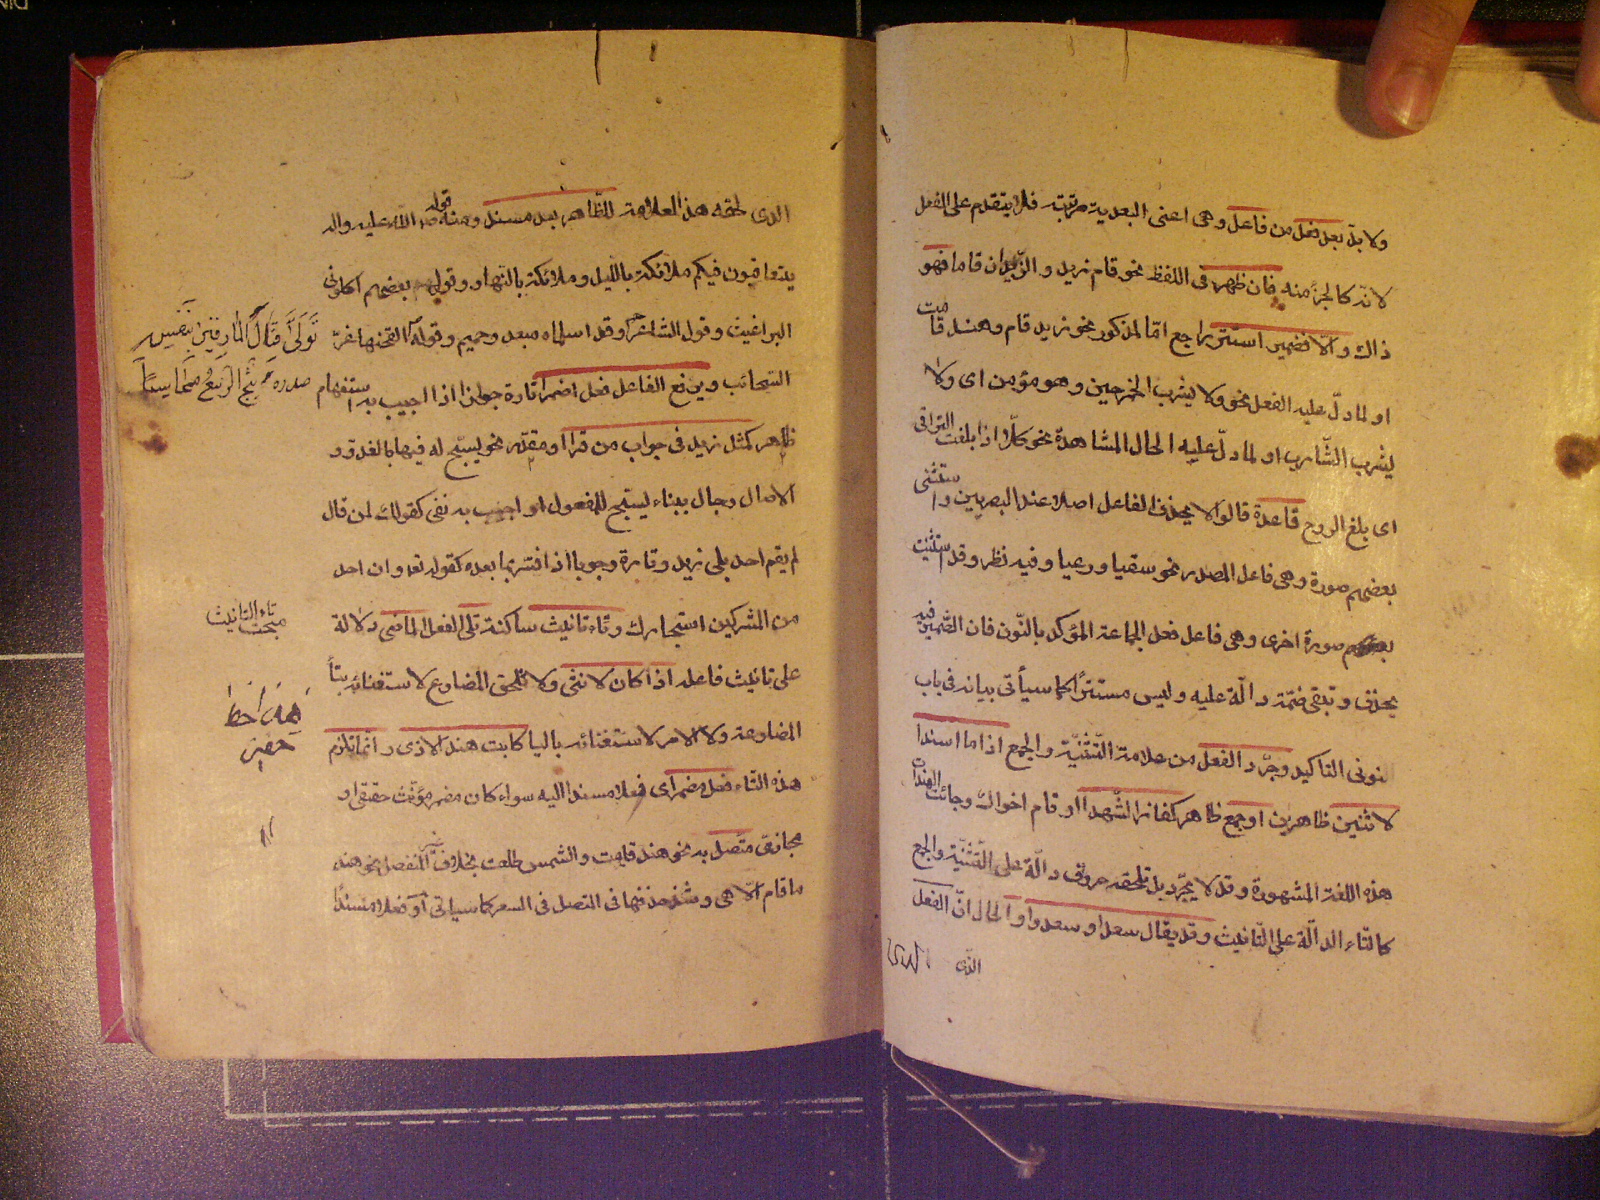 ولا بدّ بعد فعل من فاعل وهى اعنى البعدية مرتبته فلا يتقدم على الفعل
لانّه كالجزء منه فان ظهر فى اللفظ نحو قام زيد والزّيدان قاما فهو
ذاك والّا فضمير استتر راجع امّا لمذكور نحو زيد قام وهند قامت
او لما دلّ عليه الفعل نحو ولا يشرب الخمر حين وهو مؤمن اى ولا
يشرب الشّارب او لما دلّ عليه الحال المشاهدة نحو كلّا اذا بلغت التراقى
اى بلغ الروح قاعدة قالوا لا يحذف الفاعل اصلا عند البصريين واستثنى
بعضهم صورة وهى فاعل المصدر نحو سقيا ورعيا وفيه نظر وقد استثنيت
صورة اخرى وهى فاعل فعل الجماعة المؤكد بالنّون فان الضّمير فيه
يحذف وتبقى ضمّة دالّة عليه وليس مستترًا كما سيأتى بيانه فى باب
نونى التاكيد وجرّد الفعل من علامة التّثنيّة والجمع اذا ما اسندا
لاثنين ظاهرين او جمع ظاهر كفاز الشّهدا او قام اخواك وجائت الهندات
هذه اللغة المشهورة وقد لا يجرّد بل تلحقه حروف دالّة على التّثنيّة والجمع
كالتاء الدالّة على التّانيث وقد يقال سعدا وسعدوا والحال انّ الفعل
الذى
الذى لحقه هذه العلامة للظّاهر بعد مسند ومنه قوله صلى اللّه عليه واله
يتعاقبون فيكم ملائكة بالليل وملائكة بالنّهار وقول بعضهم اكلونى
البراغيث وقول الشاعر وقد اسلماه مبعد وحميم وقوله القحنها غرّ
السّحائب ويرفع الفاعل فعل اضمرا تارة جوازا اذا اجيب به استفهام
ظاهر كمثل زيد فى جواب من قرا او مقدّر نحو يسبّح له فيها بالغدوّ و
الاصال رجال ببناء يسبّح للمفعول او اجيب به نفى كقولك لمن قال
لم يقم احد بلى زيد وتارة وجوبا اذا فسّر بما بعده كقوله تعه وان احد
من المشركين استجارك وتاء تانيث ساكنة تلى الفعل الماضى دلالة
على تانيث فاعله اذا كان لانثى ولا تلحق المضارع لاستغنائه بتا
المضارعة ولا الامر لاستغنائه باليا كابت هند الاذى وانّما تلزم
هذه التّاء فعل مضمر اى فعلا مسندا اليه سواء كان مضمر مؤنّث حقيقى او
مجازى متّصل به نحو هند قامت والشمس طلعت بخلاف المنفصل نحو هند
ما قام الّا هى وشذ حذفها فى المتصل فى الشعر كما سياتى او فعلا مسندًا
مبحث تاء التانيث